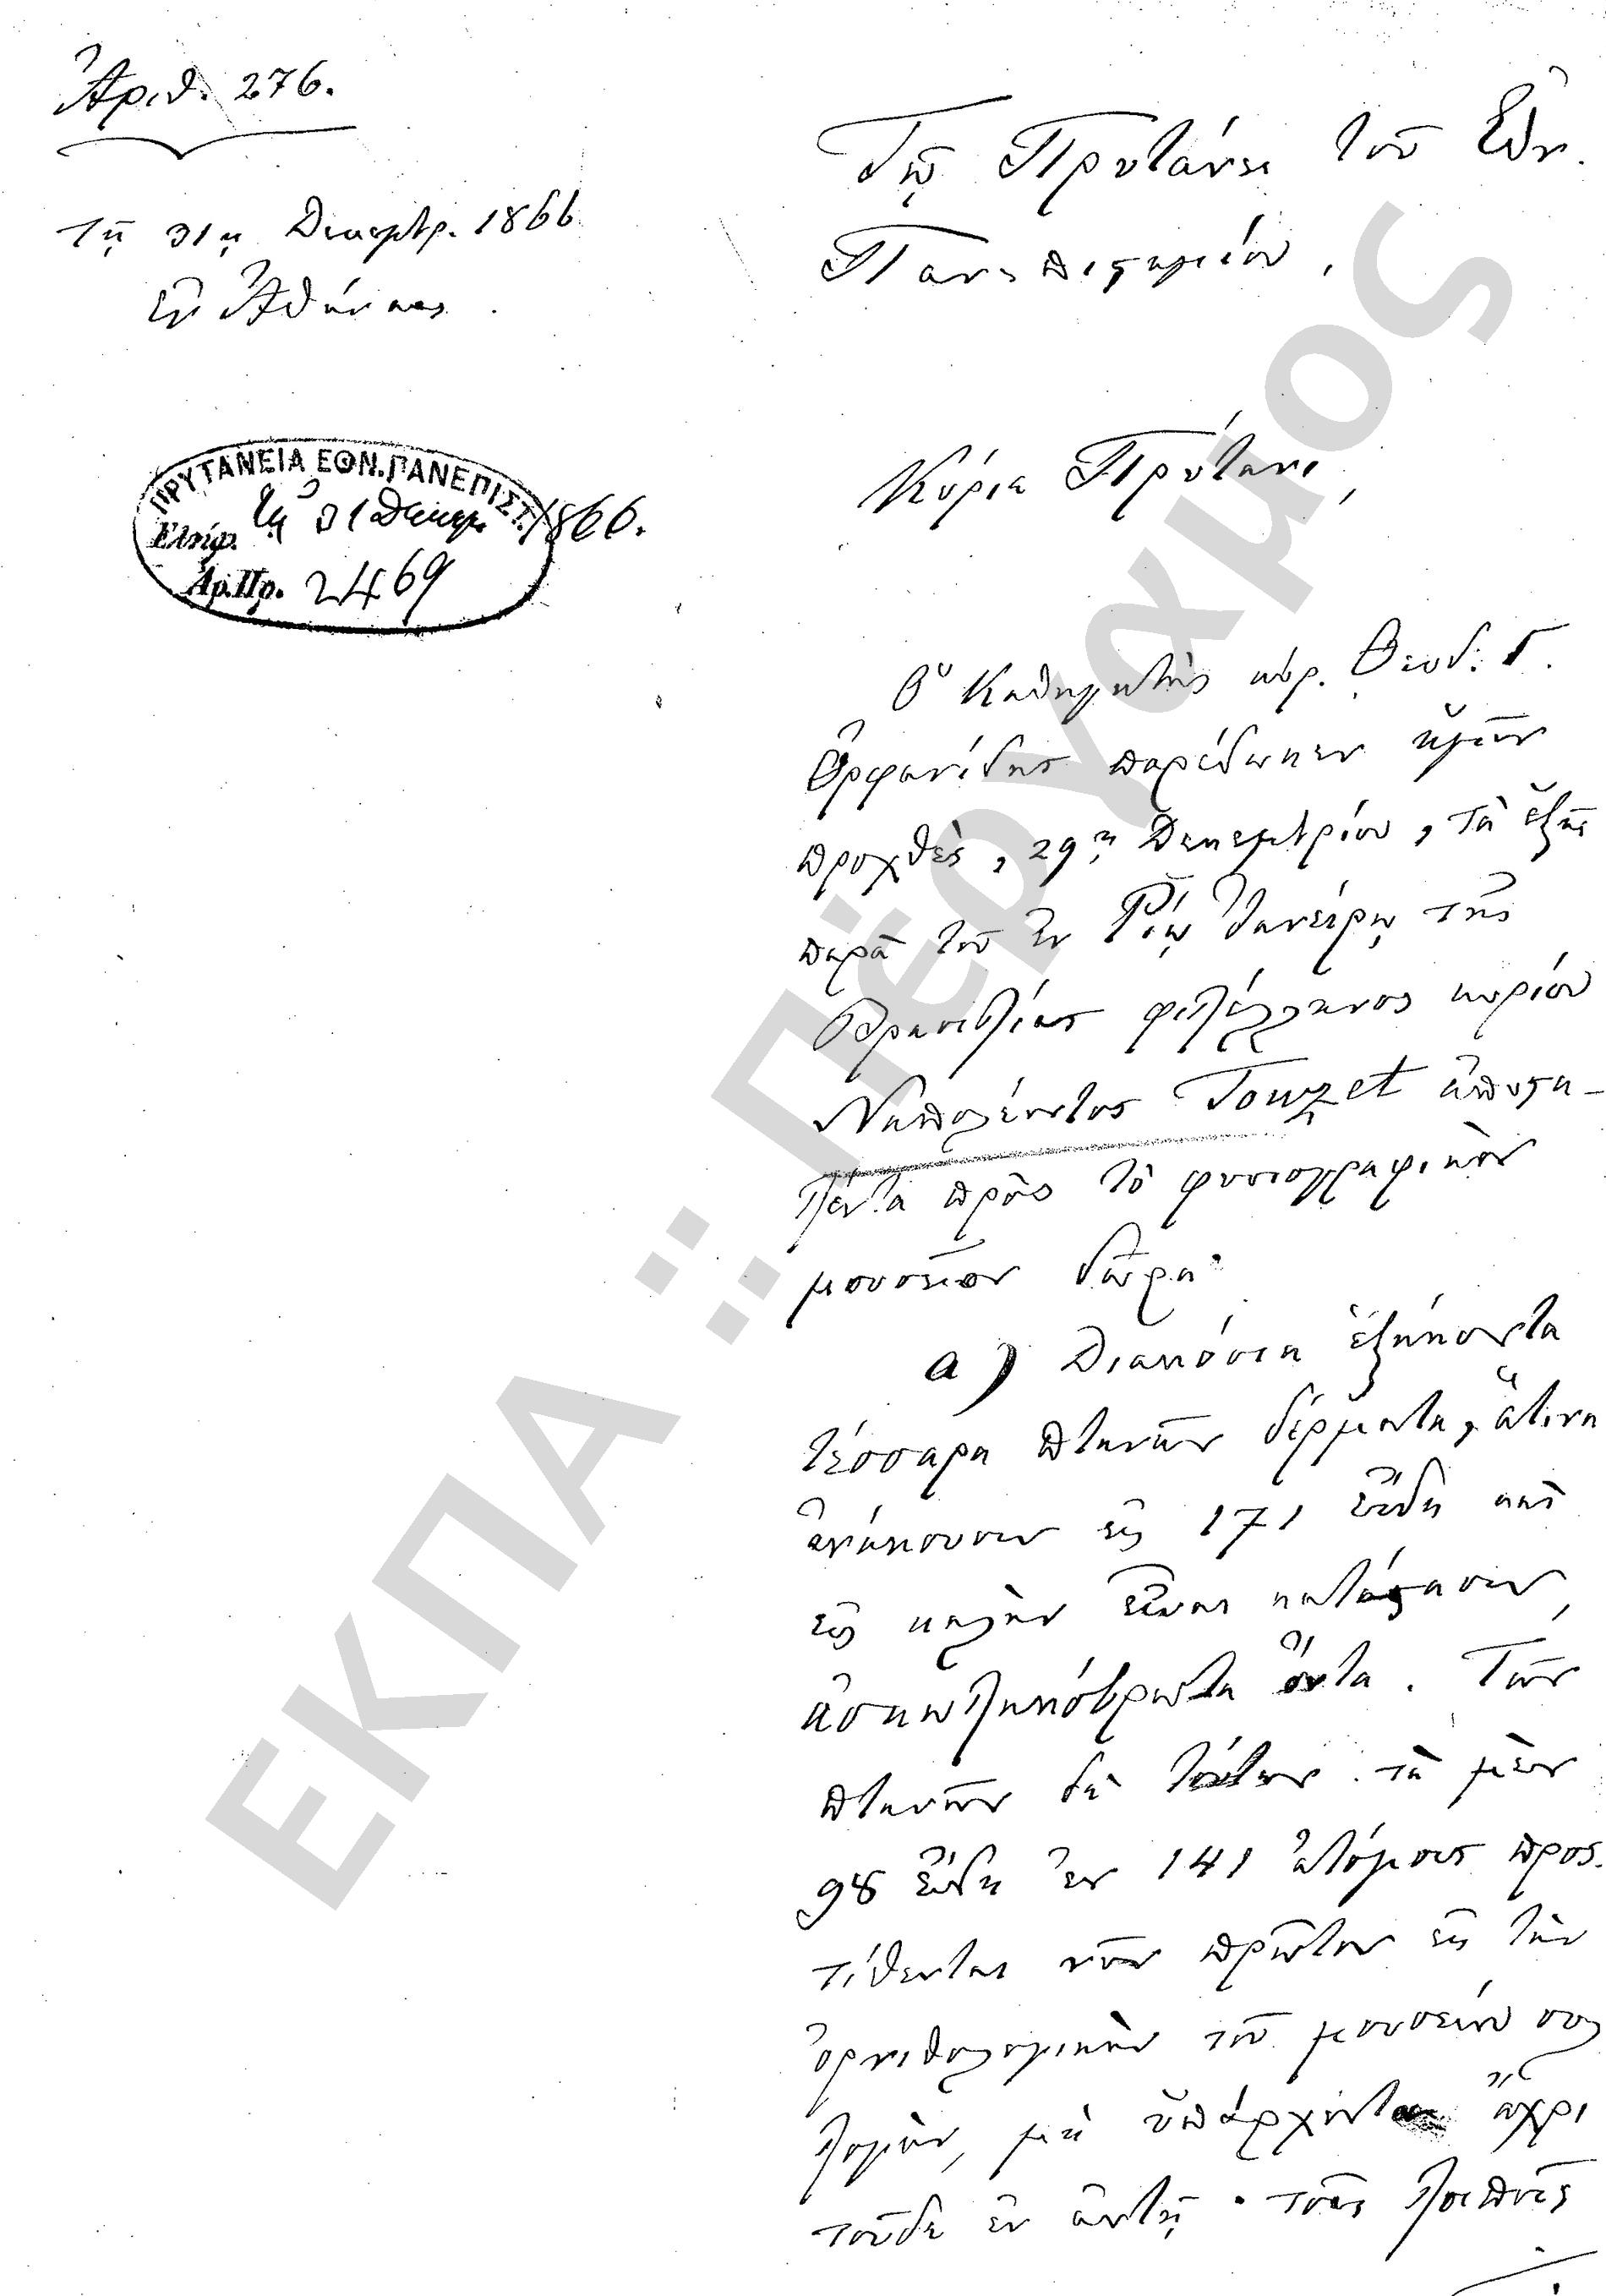 Ἀριθ. 276.
Τῇ 31ῃ Δεκεμβρ. 1866
Ἐν Ἀθήναις.
ΠΡΥΤΑΝΕΙΑ ΕΘΝ. ΠΑΝΕΠΙΣΤ.
Εἰσήχ. τῇ 31 Δεκεμ 1866.
Ἀρ. Πρ. 2469
Τῷ Πρυτάνει τοῦ Ἐθν.
Πανεπιστημίου,
Κύριε Πρύτανι,
Ὁ καθηγητὴς κύρ. Θεόδ. Γ.
Ὀρφανίδης παρέδωκεν ἡμῖν
προχθές, 29ῃ Δεκεμβρίου, τὰ ἑξῆς
παρὰ τοῦ ἐν Ῥίῳ Ἰανείρῳ τῆς
Βρασιλίας φιλέλληνος κυρίου
Ναπολέοντος Touzet ἀποστα-
λέντα πρὸς τὸ φυσιογραφικὸν
μουσεῖον δῶρα·
α) Διακόσια ἑξήκοντα
τέσσαρα πτηνῶν δέρματα, ἅτινα
ἀνήκουσιν εἰς 171 εἴδη καὶ
εἰς καλὴν εἶναι κατάστασιν,
ἀσκωληκόβρωτα ὄντα. Τῶν
πτηνῶν δὲ τούτων τὰ μὲν
98 εἴδη ἐν 141 ἀτόμοις προσ-
τίθενται νῦν πρῶτον εἰς τὴν
ὀρνιθολογικὴν τοῦ μουσείου συλ
λογὴν, μὴ ὑπάρχοντα ἄχρι
τοῦδε ἐν αὐτῇ· τοῖς λοιποῖς
ΕΚΠΑ :: Πέργαμος